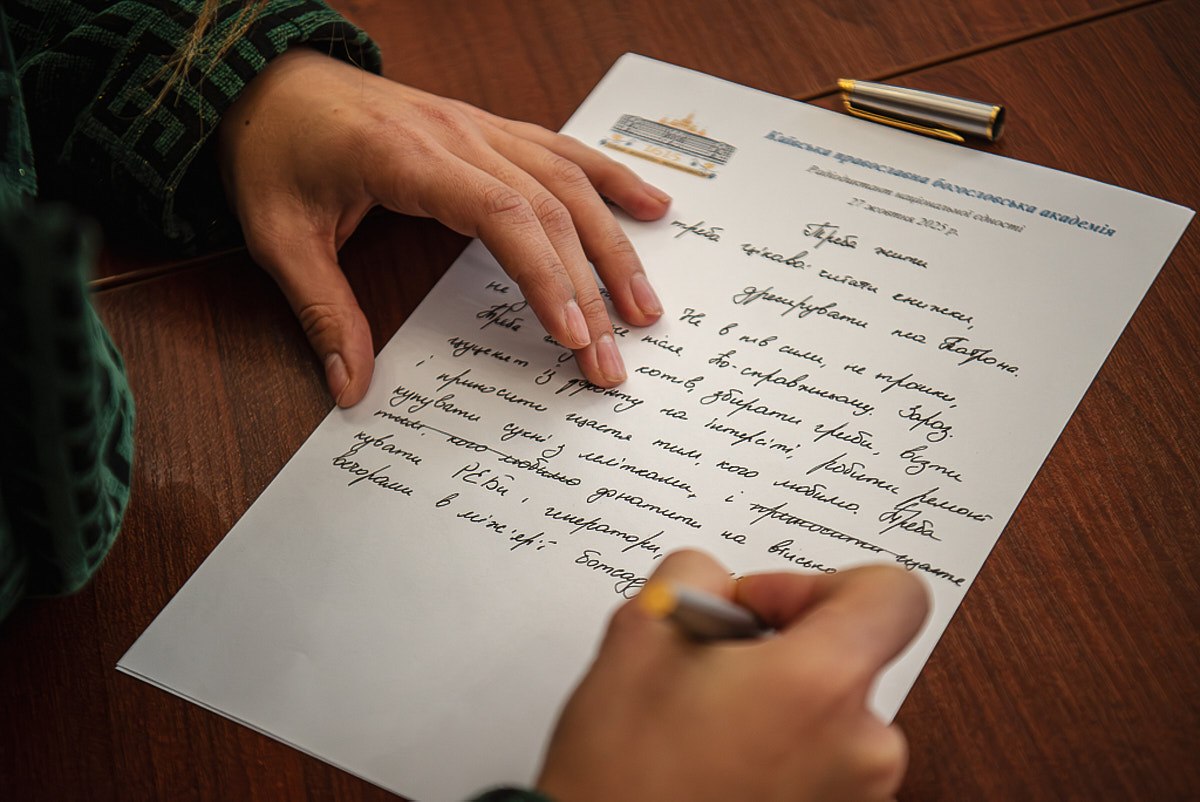 Київська православна богословська академія
Радіодиктант національної єдності
27 жовтня 2025 р.
Треба жити
треба цікаво: читати книжки,
дресирувати пса Патрона.
Не в пів сили, не трошки,
не після. По-справжньому. Зараз.
Треба котів, збирати гриби, возити
цуценят із фронту на Інтерсіті, робити ремонт
і приносити щастя тим, кого любимо. Треба
купувати сукні з лелітками, і приносити щастя
тим, кого любимо донатити на військо
кувати РЕБи, генератори,
вечорами в ботсаду